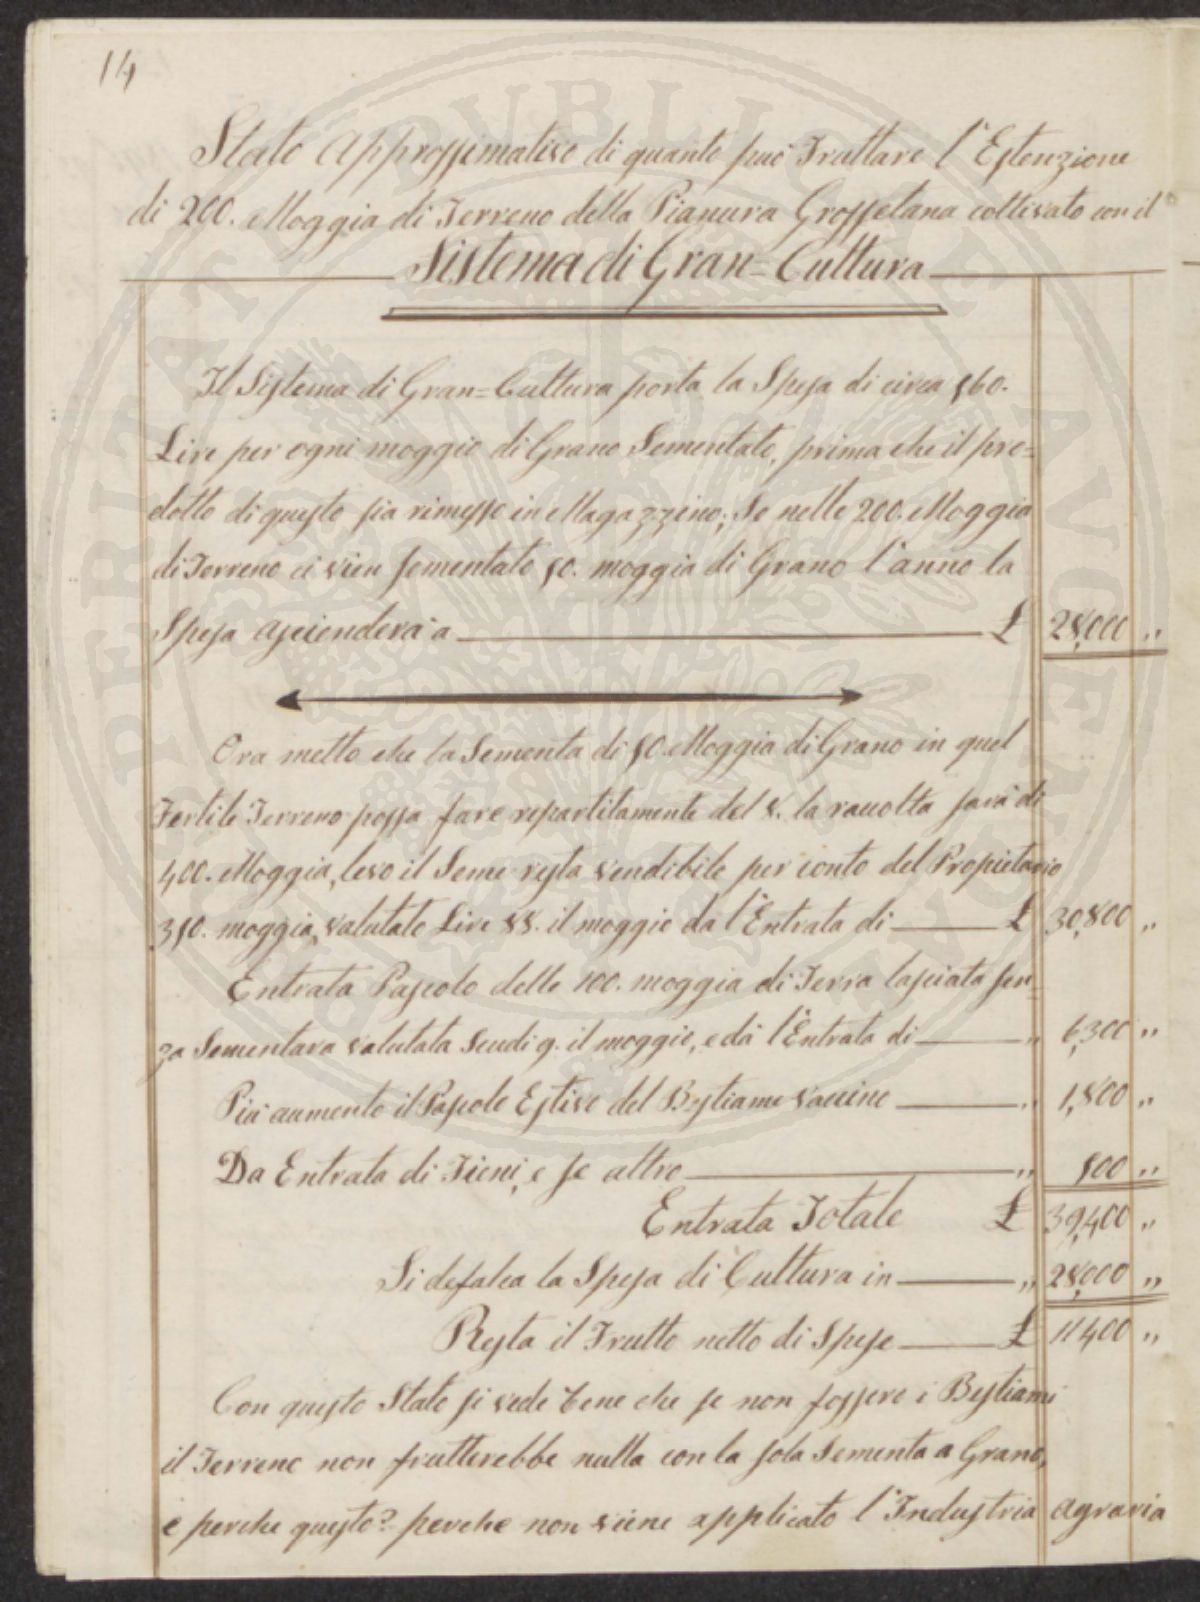 14
Stato Approssimativo di quanto può Fruttare l'Estenzione
di 200. Moggia di Terreno della Pianura Grossetana coltivato con il
Sistema di Gran=Cultura
Il Sistema di Gran=Cultura porta la Spesa di circa 560.
Lire per ogni moggio di Grano Sementato, prima che il pro=
dotto di questo sia rimesso in Magazzino; Se nelle 200. Moggia
di Terreno ci vien sementato 50. moggia di Grano l'anno la
Spesa ascienderà a £ 28,000 „
Ora metto che la Sementa di 50. Moggia di Grano in quel
Fertile Terreno possa fare repartitamente del 8. la raccolta sarà di
400. Moggia, levo il Seme resta vendibile per conto del Propietario
350. moggia, valutato Lire 88. il moggio da l'Entrata di £ 30,800 „
Entrata Pascolo delle 100. moggia di Terra lasciata sen=
za Sementara valutata Scudi 9. il moggio, e dà l'Entrata di „ 6,300 „
Più aumento il Pascolo Estivo del Bestiame vaccino „ 1,800 „
Da Entrata di Fieni, e se altro „ 500 „
Entrata Totale £ 39,400 „
Si defalca la Spesa di Cultura in „ 28,000 „
Resta il Frutto netto di Spese £ 11400 „
Con questo Stato si vede bene che se non fossero i Bestiami
il Terreno non frutterebbe nulla con la sola Sementa a Grano,
e perche questo? perche non viene applicato l'Industria agraria
PERITAT PVBLICAE AVGENDAE